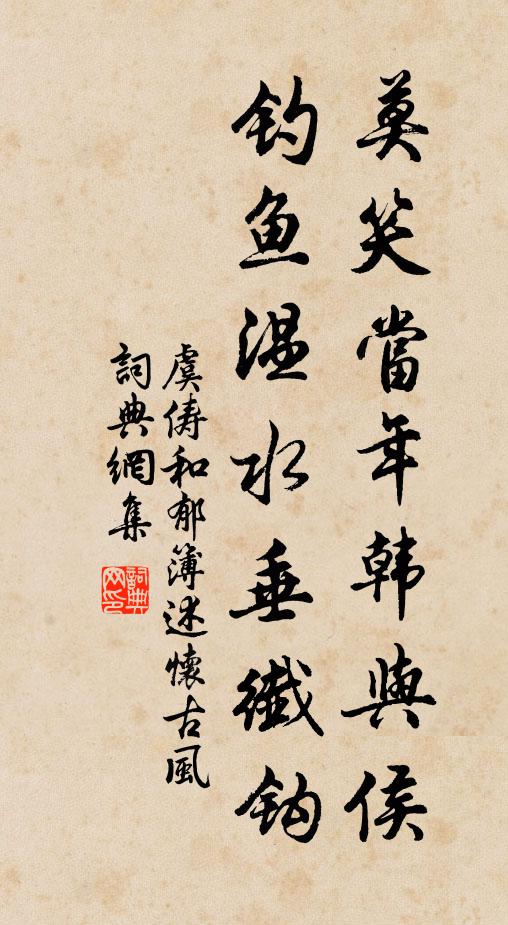 莫笑當年韩與侯
钓鱼温水垂纖钩
虞俦和郁簿述懷古風
詞典網集
詞典网印